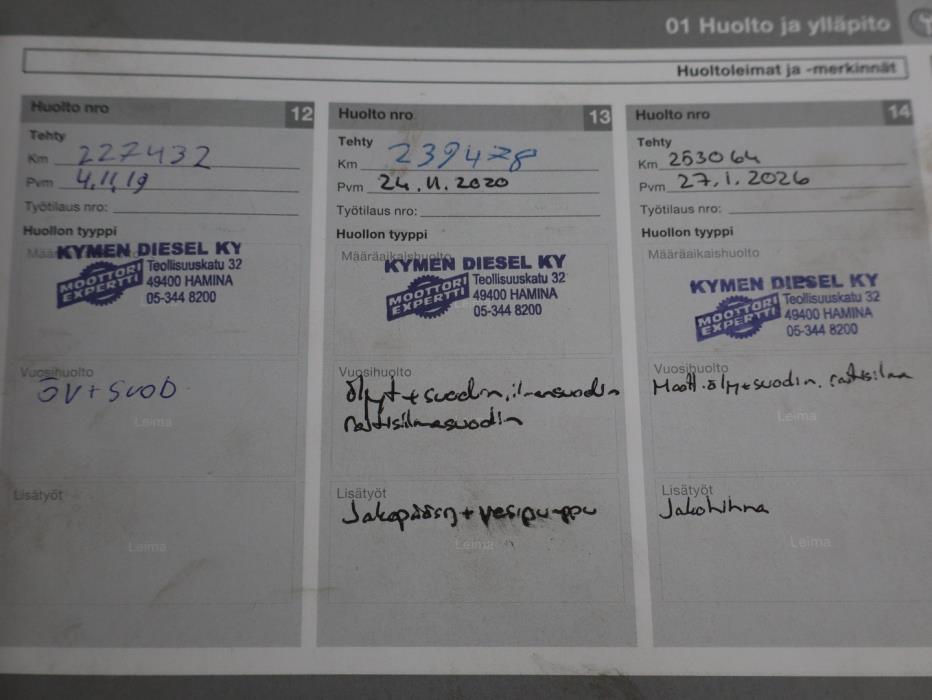 01 Huolto ja ylläpito
Huoltoleimat ja -merkinnät
Huolto nro 12
Tehty
Km 227432
Pvm 4.11.19
Työtilaus nro:
Huollon tyyppi
Määräaikaishuolto
KYMEN DIESEL KY
MOOTTORI EXPERTTI
Teollisuuskatu 32
49400 HAMINA
05-344 8200
Vuosihuolto
ÖV + SUOD
Leima
Lisätyöt
Leima
Huolto nro 13
Tehty
Km 239478
Pvm 24.11.2020
Työtilaus nro:
Huollon tyyppi
Määräaikaishuolto
KYMEN DIESEL KY
MOOTTORI EXPERTTI
Teollisuuskatu 32
49400 HAMINA
05-344 8200
Vuosihuolto
Öljyt + suodin, ilmansuodin
raitisilmasuodin
Lisätyöt
Jakopään + vesipumppu
Leima
Huolto nro 14
Tehty
Km 253064
Pvm 27.1.2026
Työtilaus nro:
Huollon tyyppi
Määräaikaishuolto
KYMEN DIESEL KY
MOOTTORI EXPERTTI
Teollisuuskatu 32
49400 HAMINA
05-344 8200
Vuosihuolto
Moott.öljy + suodin, raitisilma
Leima
Lisätyöt
Jakohihna
Leima